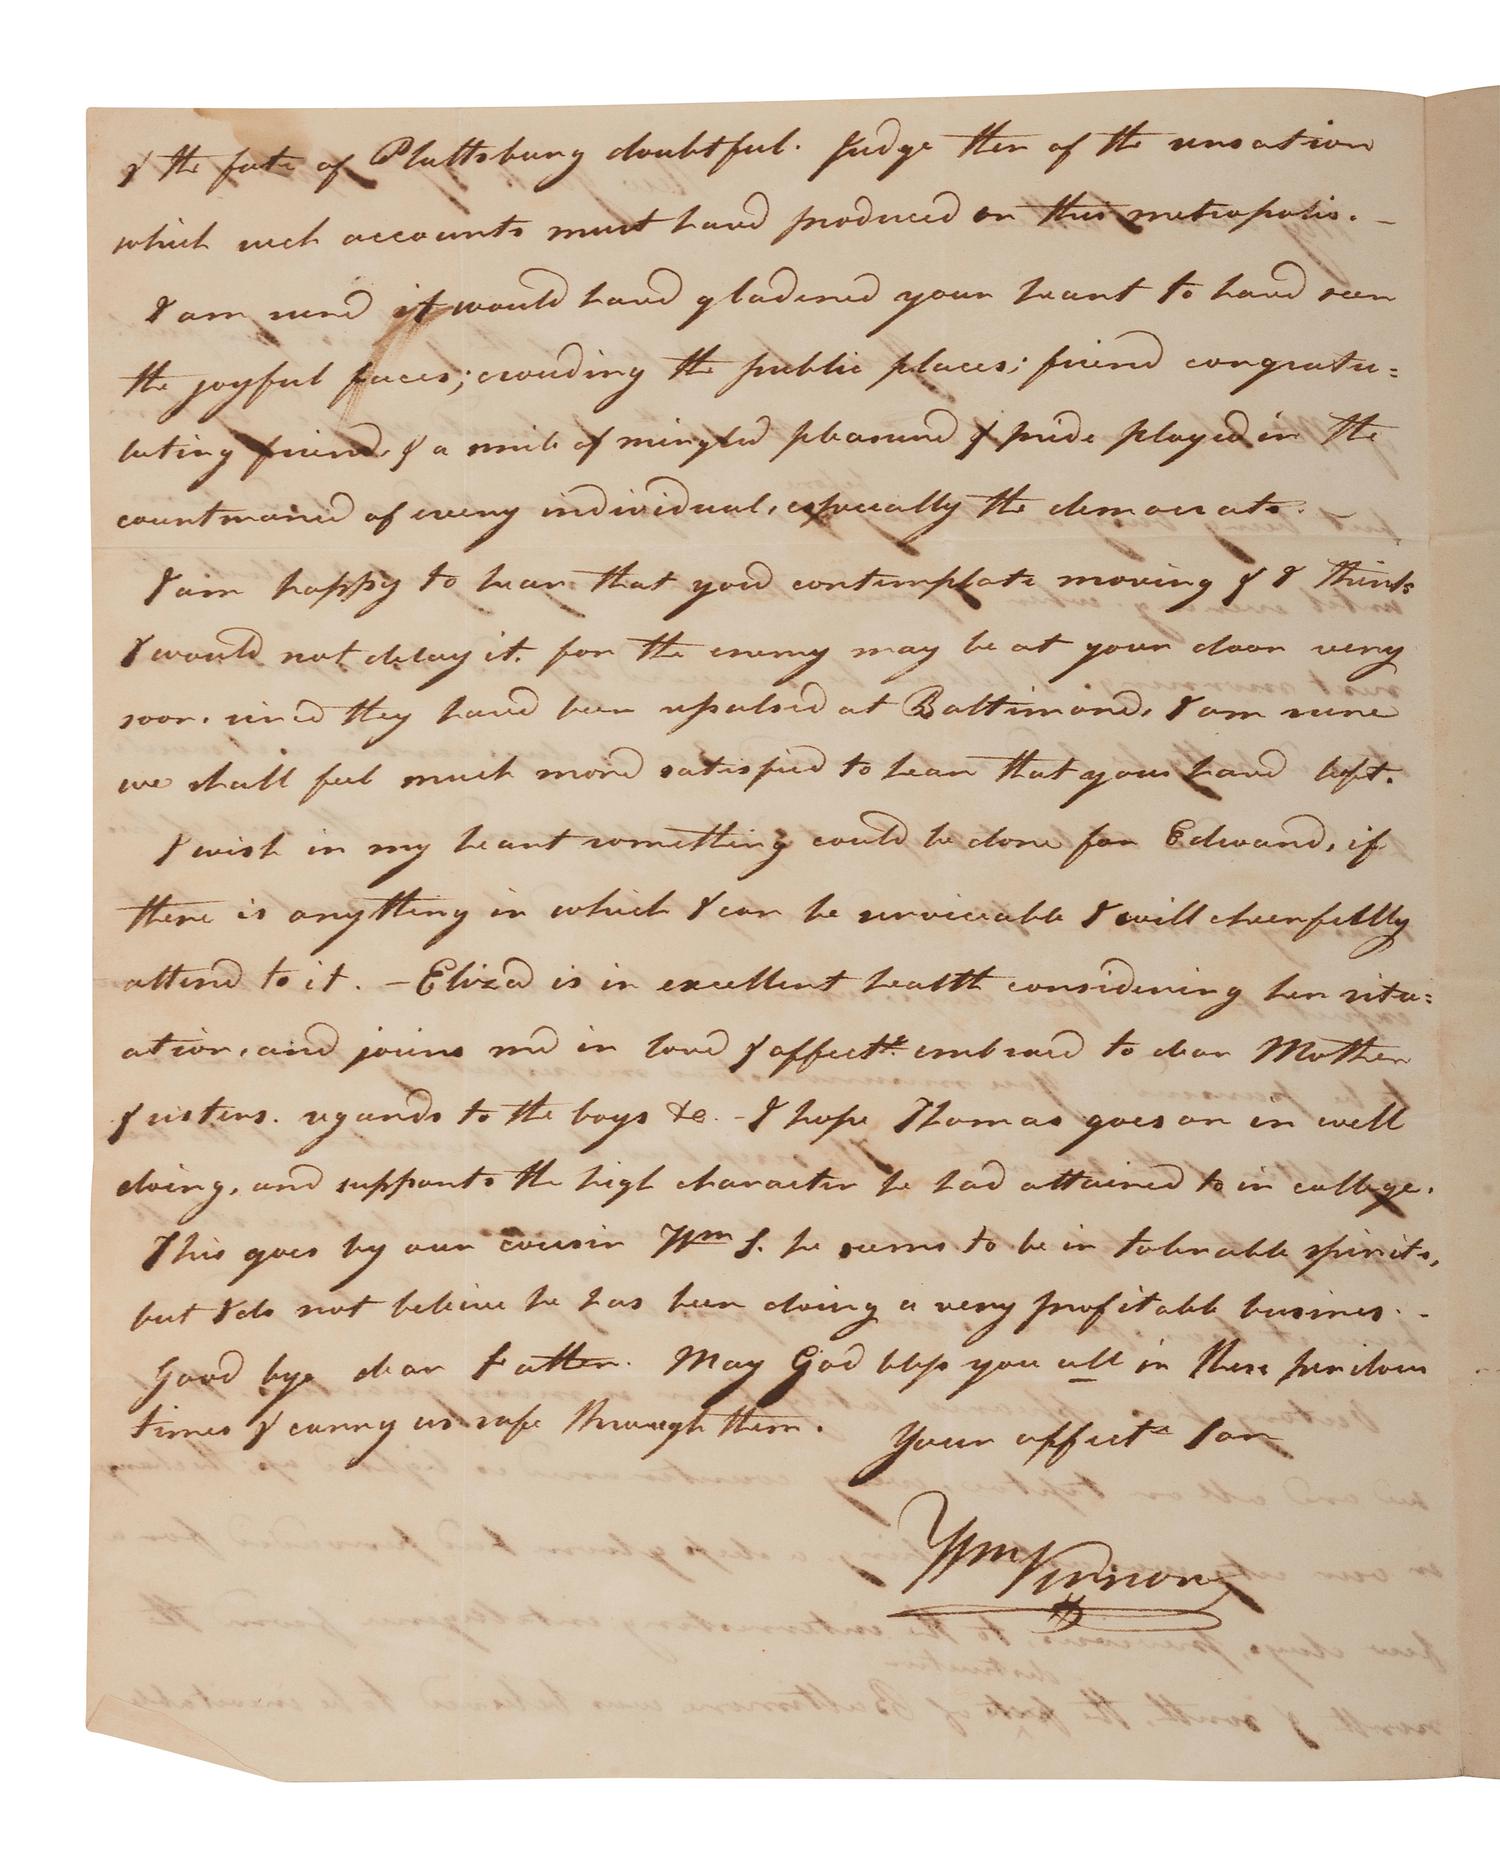 & the fate of Plattsburg doubtful. Judge then of the sensation
which such accounts must have produced on this metropolis. —
I am sure it would have gladened your heart to have seen
the joyful faces; crouding the public places; friend congratu=
lating friend, & a smile of mingled pleasure & pride played in the
countenance of every individual, especially the democrats. —
I am happy to hear that you contemplate moving & I think
I would not delay it. for the enemy may be at your door very
soon. since they have been repulsed at Baltimore, I am sure
we shall feel much more satisfied to hear that you have left.
I wish in my heart something could be done for Edward, if
there is anything in which I can be serviceable I will cheerfully
attend to it. — Eliza is in excellent health considering her situ=
ation, and joins me in love & affectte. embrace to dear Mother
& sisters. regards to the boys &c. - I hope Thomas goes on in well
doing, and supports the high character he had attained to in college.
This goes by our cousin Wm S. he seems to be in tolerable spirits,
but I do not believe he has been doing a very profitable busines. -
Good bye dear Father. May God bless you all in these perilous
times & carry us safe through them.
Your affecte Son
Wm Vernon